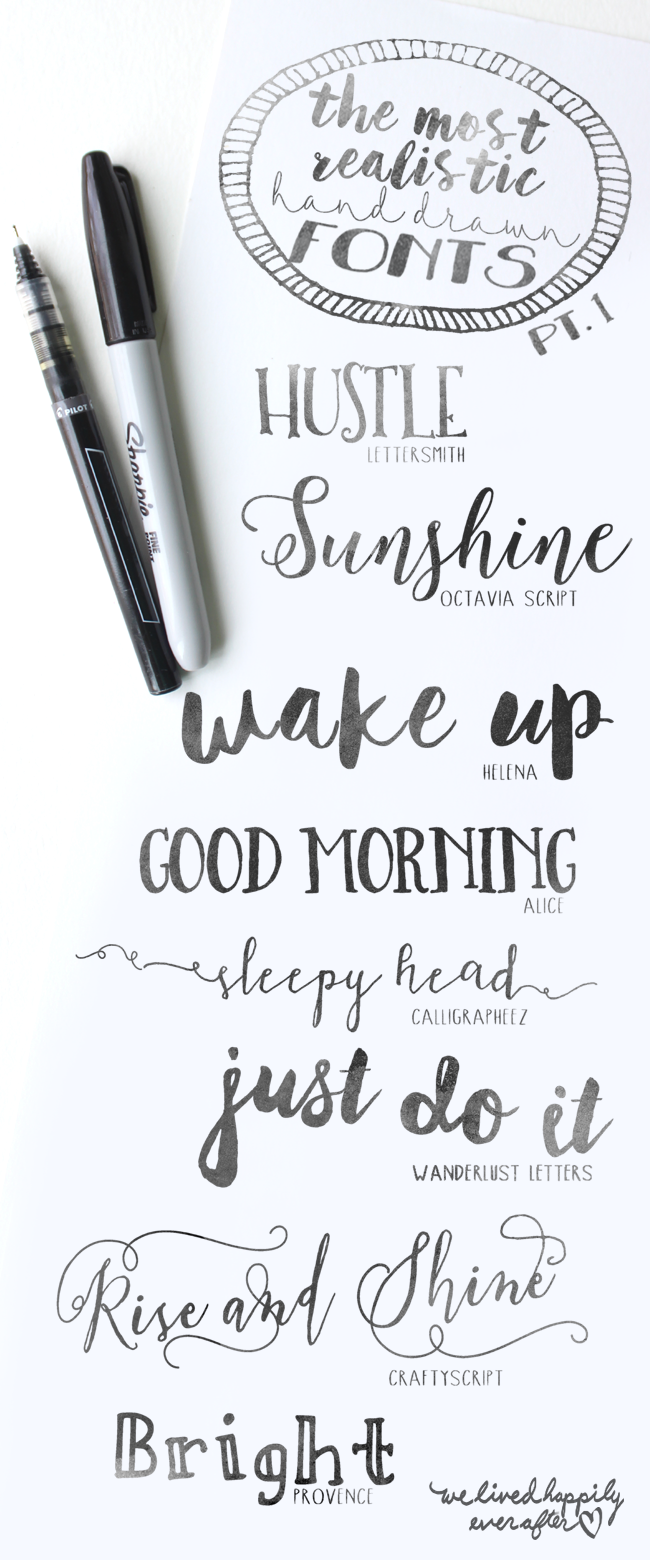 the most
realistic
hand drawn
FONTS
PT. 1
HUSTLE
LETTERSMITH
PILOT
Sharpie
FINE
POINT
Sunshine
OCTAVIA SCRIPT
wake up
HELENA
GOOD MORNING
ALICE
sleepy head
CALLIGRAPHEEZ
just do it
WANDERLUST LETTERS
Rise and Shine
CRAFTYSCRIPT
Bright
PROVENCE
we lived happily
ever after